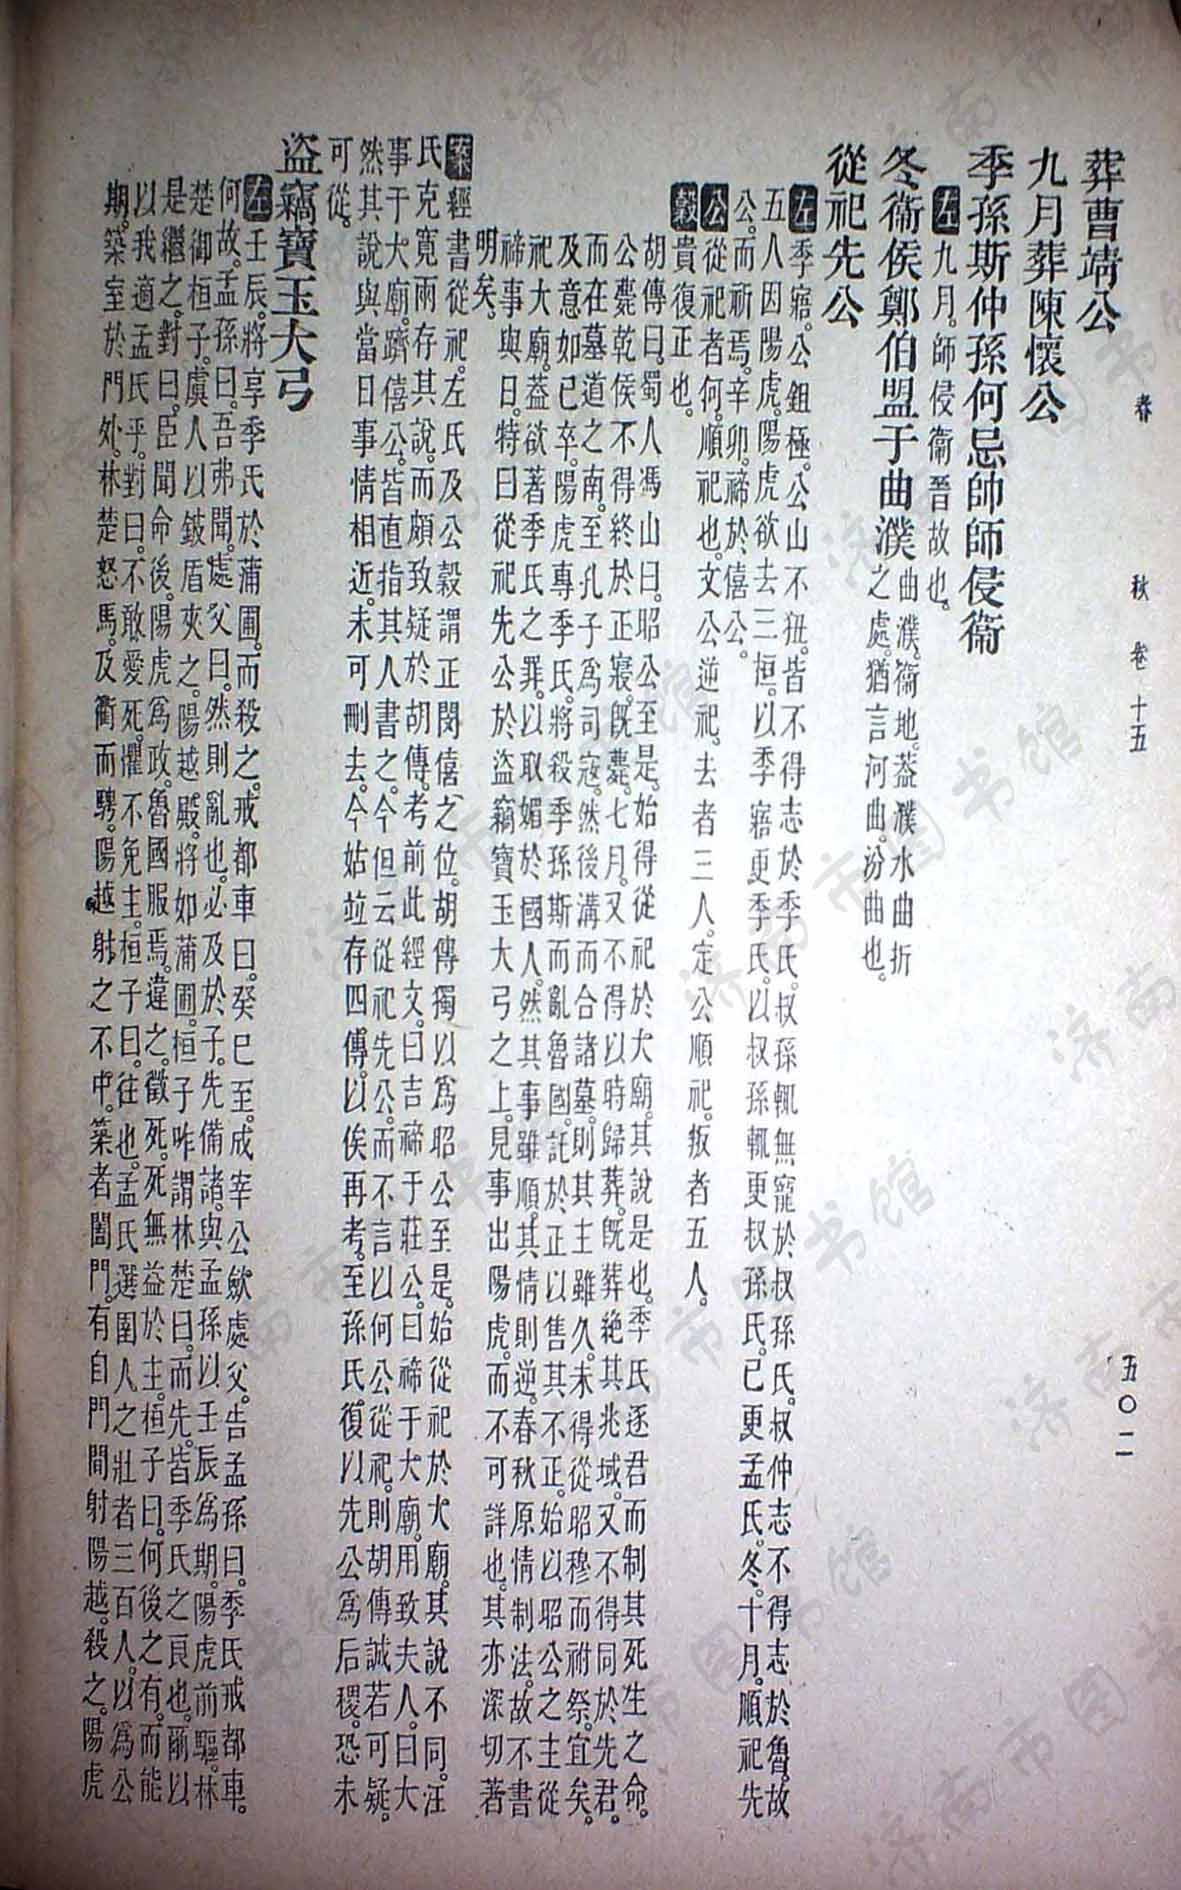 春秋 卷十五 五〇二
葬曹靖公
九月葬陳懷公
季孫斯仲孫何忌帥師侵衞
左九月。師侵衞。晉故也。
冬衞侯鄭伯盟于曲濮曲濮。衞地。葢濮水曲折
之處。猶言河曲。汾曲也。
從祀先公
左季寤。公鉏極。公山不狃。皆不得志於季氏。叔孫輒無寵於叔孫氏。叔仲志不得志於魯。故
五人因陽虎。陽虎欲去三桓。以季寤更季氏。以叔孫輒更叔孫氏。己更孟氏。冬。十月。順祀先
公。而祈焉。辛卯。禘於僖公。
公從祀者何。順祀也。文公逆祀。去者三人。定公順祀。叛者五人。
穀貴復正也。
胡傳曰。蜀人馮山曰。昭公至是。始得從祀於大廟。其說是也。季氏逐君而制其死生之命。
公薨乾侯。不得終於正寢。旣薨。七月。又不得以時歸葬。旣葬。絶其兆域。又不得同於先君。
而在墓道之南。至孔子爲司寇。然後溝而合諸墓。則其主雖久。未得從昭穆而祔祭。宜矣。
及意如已卒。陽虎專季氏。將殺季孫斯而亂魯國。託於正以售其不正。始以昭公之主從
祀大廟。葢欲著季氏之罪。以取媚於國人。然其事雖順。其情則逆。春秋原情制法。故不書
禘事與日。特曰從祀先公於盜竊寶玉大弓之上。見事出陽虎。而不可詳也。其亦深切著
明矣。
案經書從祀。左氏及公穀謂正閔僖之位。胡傳獨以爲昭公至是。始從祀於大廟。其說不同。汪
氏克寬兩存其說。而頗致疑於胡傳。考前此經文。曰吉禘于莊公。曰禘于大廟。用致夫人。曰大
事于大廟。躋僖公。皆直指其人書之。今但云從祀先公。而不言以何公從祀。則胡傳誠若可疑。
然其說與當日事情相近。未可刪去。今姑竝存四傳。以俟再考。至孫氏復以先公爲后稷。恐未
可從。
盜竊寶玉大弓
左壬辰。將享季氏於蒲圃。而殺之。戒都車曰。癸巳至。成宰公歛處父。告孟孫曰。季氏戒都車。
何故。孟孫曰。吾弗聞。處父曰。然則亂也。必及於子。先備諸。與孟孫以壬辰爲期。陽虎前驅。林
楚御桓子。虞人以鈹盾夾之。陽越殿。將如蒲圃。桓子咋謂林楚曰。而先。皆季氏之良也。爾以
是繼之。對曰。臣聞命後。陽虎爲政。魯國服焉。違之。徵死。死無益於主。桓子曰。何後之有。而能
以我適孟氏乎。對曰。不敢愛死。懼不免主。桓子曰。往也。孟氏選圉人之壯者三百人。以爲公
期。築室於門外。林楚怒馬。及衢而騁。陽越射之不中。築者闔門。有自門間射陽越。殺之。陽虎